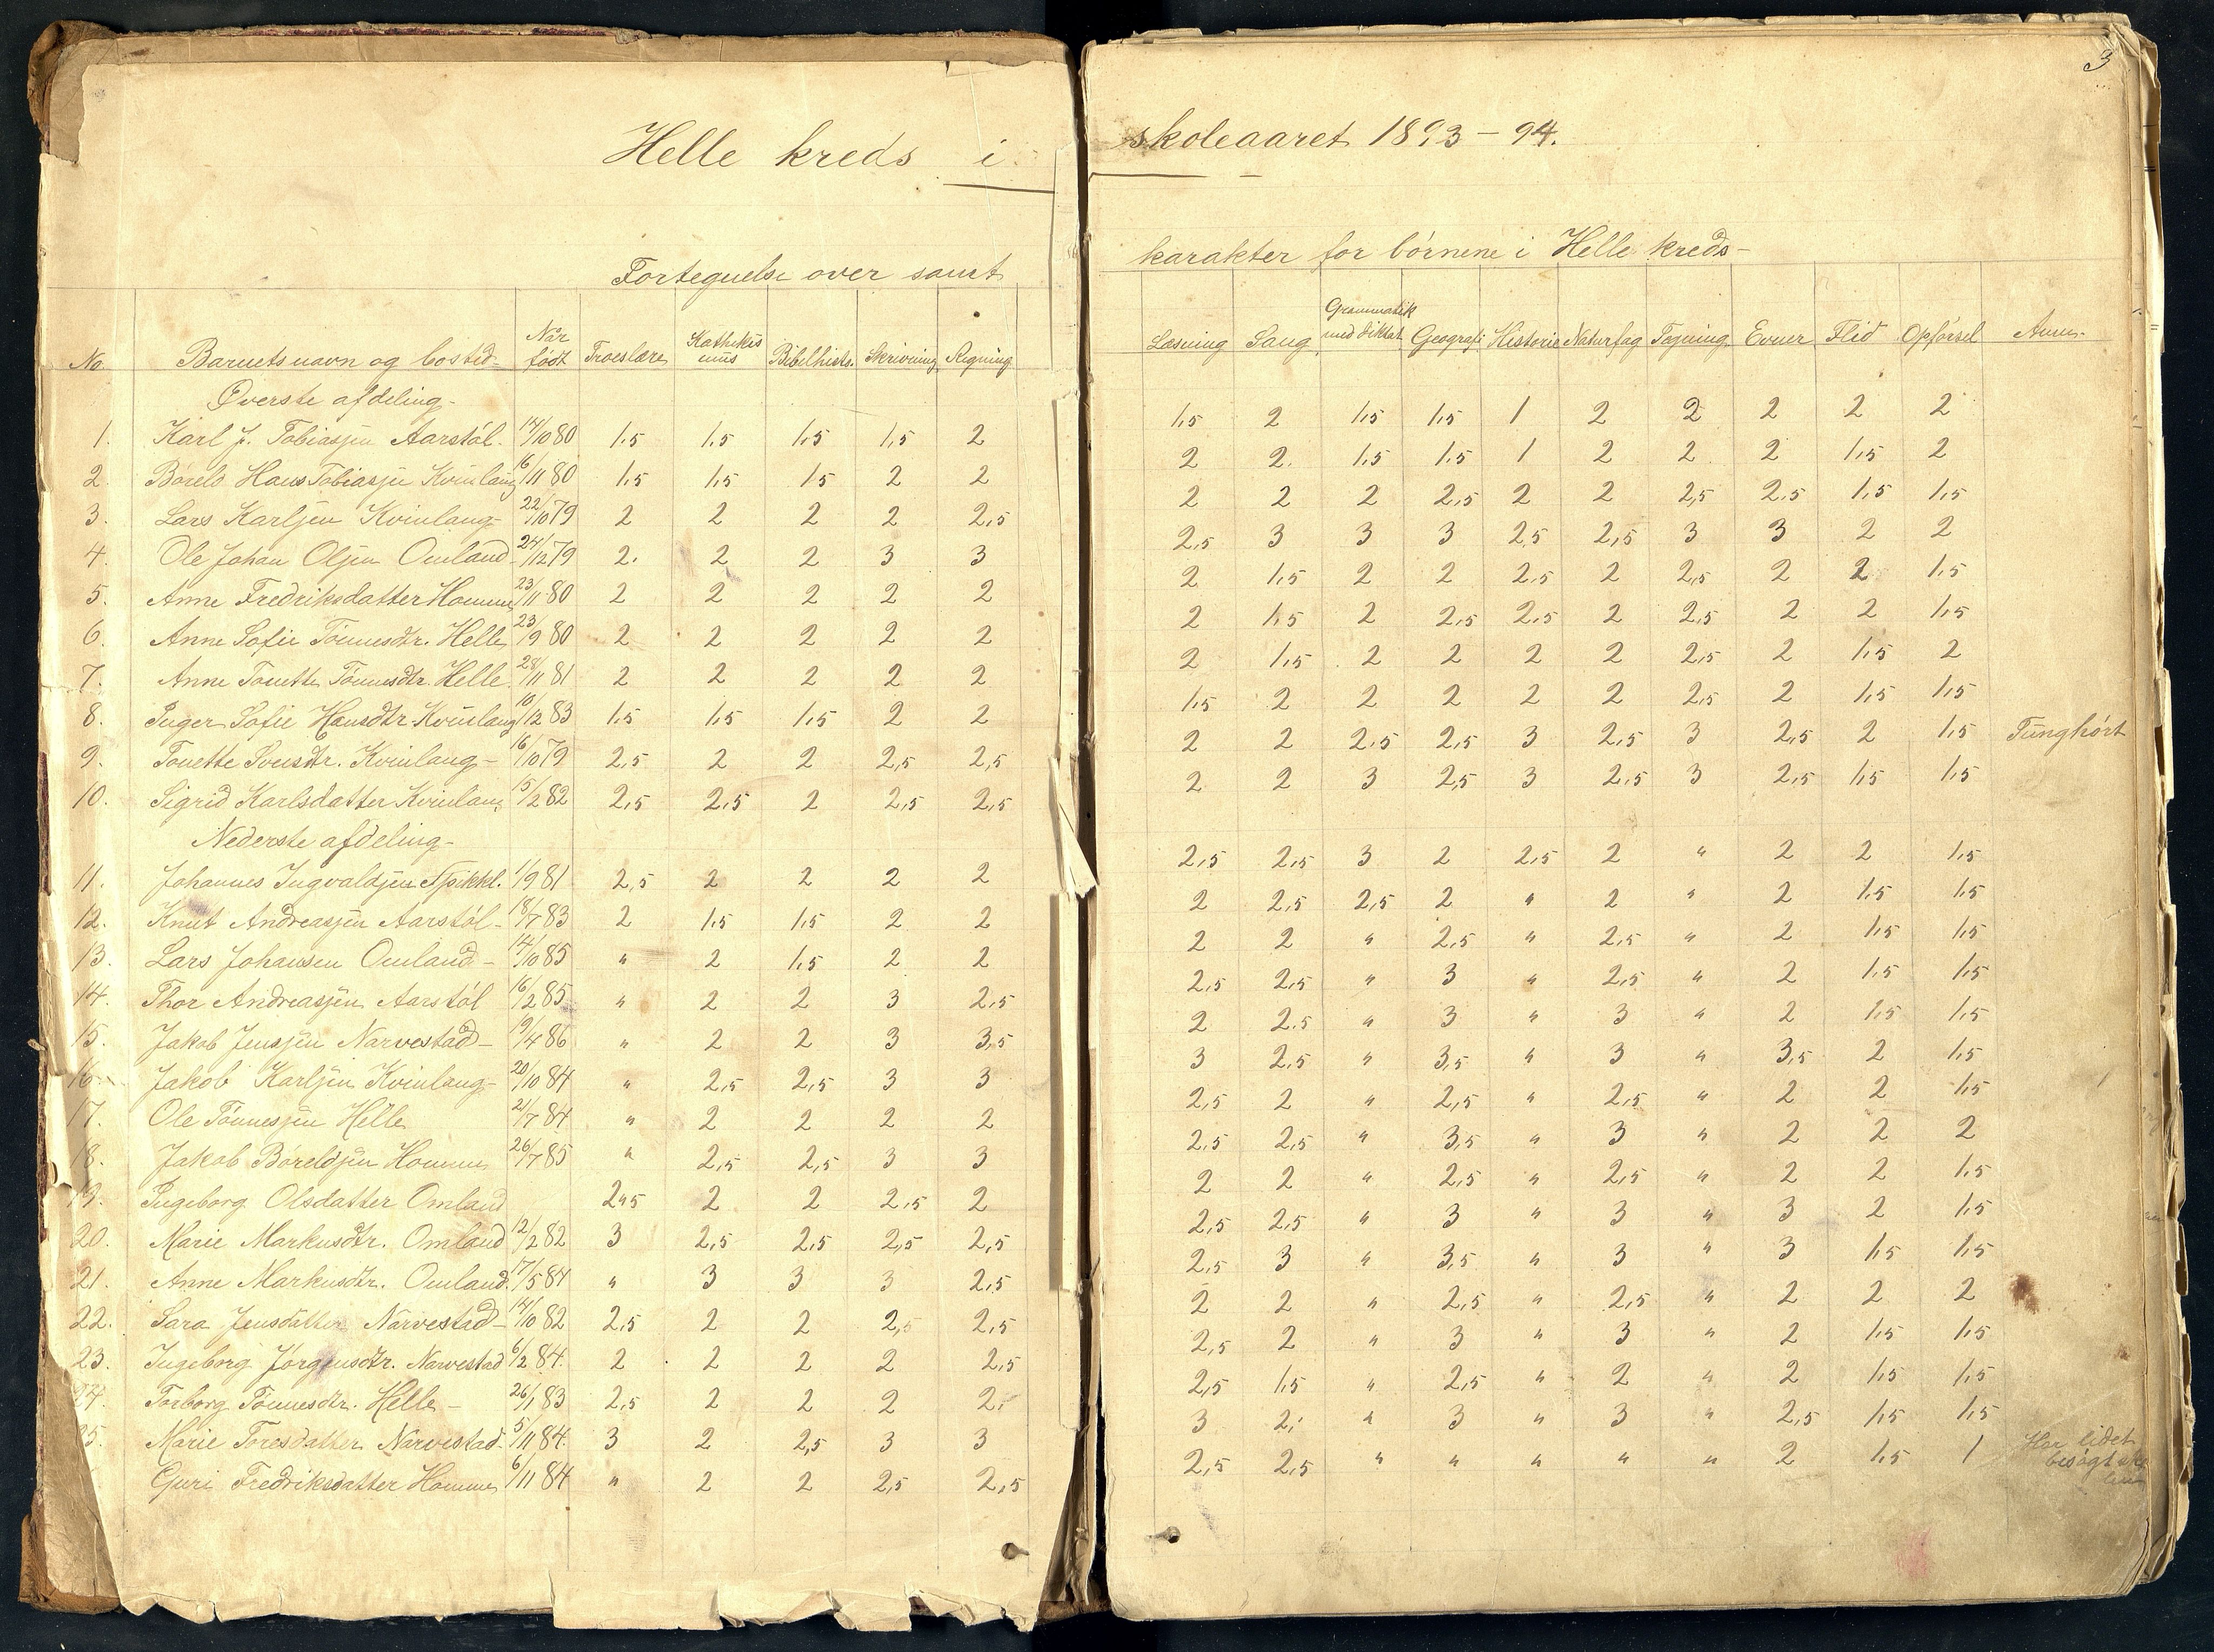 3
Helle kreds i skoleaaret 1893-94.
Fortegnelse over samt karakter for börnene i Helle kreds-
No. Barnets navn og bosted- Når født Troeslære Kathekismus Bibelhisto. Skrivning Regning Læsning Sang Grammatik med diktat Geografi Historie Naturfag Tegning Evner Flid Opförsel Anm.
Øverste afdeling-
1. Karl J. Tobiasjen Aarstöl. 14/10 80 1,5 1,5 1,5 1,5 2 1,5 2 1,5 1,5 1 2 2 2 2 2
2. Böreld Hans Tobiasjen Kvinlaug 16/11 80 1,5 1,5 1,5 2 2 2 2. 1,5 1,5 1 2 2 2 1,5 2
3. Lars Karljen Kvinlaug- 22/10 79 2 2 2 2 2,5 2 2 2 2,5 2 2 2,5 2,5 1,5 1,5
4. Ole Johan Oljen Omland- 24/12 79 2. 2 2 3 3 2,5 3 3 3 2,5 2,5 3 3 2 2
5. Anne Fredriksdatter Homme 23/11 80 2 2 2 2 2 2 1,5 2 2 2,5 2 2,5 2 2 1,5
6. Anne Sofie Tönnesdtr. Helle 23/9 80 2 2 2 2 2 2 1,5 2 2,5 2,5 2 2,5 2 2 1,5
7. Anne Tonette Tönnesdtr. Helle. 28/11 81 2 2 2 2 2 2 1,5 2 2 2 2 2,5 2 1,5 2
8. Inger Sofie Hansdtr. Kvinlaug 10/12 83 1,5 1,5 1,5 2 2 1,5 2 2 2 2 2 2,5 2 1,5 1,5
9. Tonette Svensdtr. Kvinlaug- 16/10 79 2,5 2 2 2,5 2,5 2 2 2,5 2,5 3 2,5 3 2,5 2 1,5 Tunghört
10. Sigrid Karlsdatter Kvinlaug 15/2 82 2,5 2,5 2 2,5 2,5 2 2 3 2,5 3 2,5 3 2,5 1,5 1,5
Nederste afdeling-
11. Johannes Ingvaldjen 1/9 81 2,5 2 2 2 2 2,5 2,5 3 2 2,5 2 " 2 2 1,5
12. Knut Andreasjen Aarstöl- 18/7 83 2 1,5 1,5 2 2 2 2,5 2,5 2 " 2 " 2 1,5 1,5
13. Lars Johansen Omland- 14/10 85 " 2 1,5 2 2 2 2 " 2,5 " 2,5 " 2 1,5 1,5
14. Thor Andreasjen Aarstöl 16/2 85 " 2 2 3 2,5 2,5 2,5 " 3 " 2,5 " 2 1,5 1,5
15. Jakob Jensjen Narvestad- 19/4 86 " 2 2 3 3,5 2 2,5 " 3 " 3 " 2 1,5 1,5
16 Jakob Karljen Kvinlaug- 20/10 84 " 2,5 2,5 3 3 3 2,5 " 3,5 " 3 " 3,5 2 1,5
17. Ole Tönnesjen Helle 21/7 84 " 2 2 2 2 2,5 2 " 2,5 " 2,5 " 2 2 1,5
18. Jakob Böreldjen Homme 26/7 85 " 2,5 2,5 3 3 2,5 2,5 " 3,5 " 3 " 2 2 2
19. Ingeborg Olsdatter Omland 2,5 2 2 2,5 2 2 2 " 2,5 " 2,5 " 2 2 1,5
20. Marie Markusdtr. Omland 12/2 82 3 2,5 2,5 2,5 2,5 2,5 2,5 " 3 " 3 " 3 2 1,5
21. Anne Markusdtr. Omland. 17/5 84 " 3 3 3 2,5 2,5 3 " 3,5 " 3 " 3 1,5 1,5
22. Sara Jensdatter Narvestad- 14/10 82 2,5 2 2 2,5 2,5 2 2 " 2,5 " 2,5 " 2 2 2
23. Ingeborg Jörgensdtr. Narvestad 6/2 84. 2 2 2 2 2,5 2,5 2 " 3 " 3 " 2 1,5 1,5
24. Torborg Tönnesdtr. Helle- 26/1 83 2,5 2 2 2 2. 2,5 1,5 " 2,5 " 2 " 2 1,5 1,5
25. Marie Toresdatter Narvestad. 5/11 84. 3 2 2,5 3 3 3 2. " 3 " 3 " 2,5 1,5 1,5
Guri Fredriksdatter Homme 6/11 84 " 2 2 2,5 2,5 2,5 2,5 " " " " " 2 1,5 1 Har lidet besögt